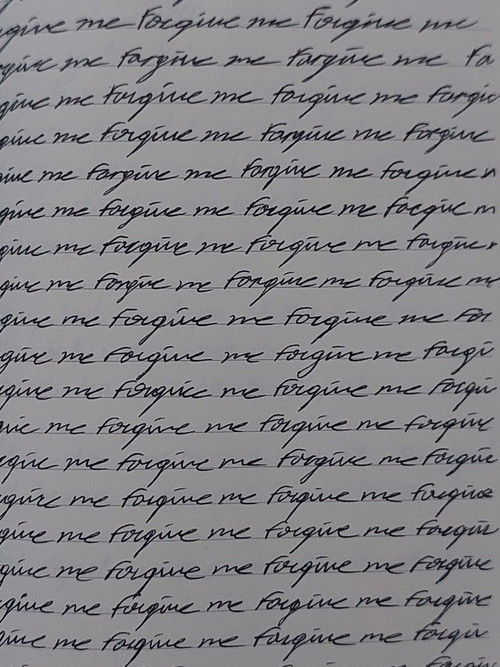 give me Forgive me Forgive me
give me Forgive me Forgive me Fo
give me Forgive me Forgive me Forgiv
give me Forgive me Forgive me Forgive
give me Forgive me Forgive me Forgive m
give me Forgive me Forgive me Forgive m
give me Forgive me Forgive me Forgive
give me Forgive me Forgive me Forgive me
give me Forgive me Forgive me For
give me Forgive me Forgive me Forgi
give me Forgive me Forgive me Forgiv
give me Forgive me Forgive me Forgive
give me Forgive me Forgive me Forgive
give me Forgive me Forgive me Forgive
give me Forgive me Forgive me Forgive
give me Forgive me Forgive me Forgive
give me Forgive me Forgive me Forgive
give me Forgive me Forgive me Forgiv